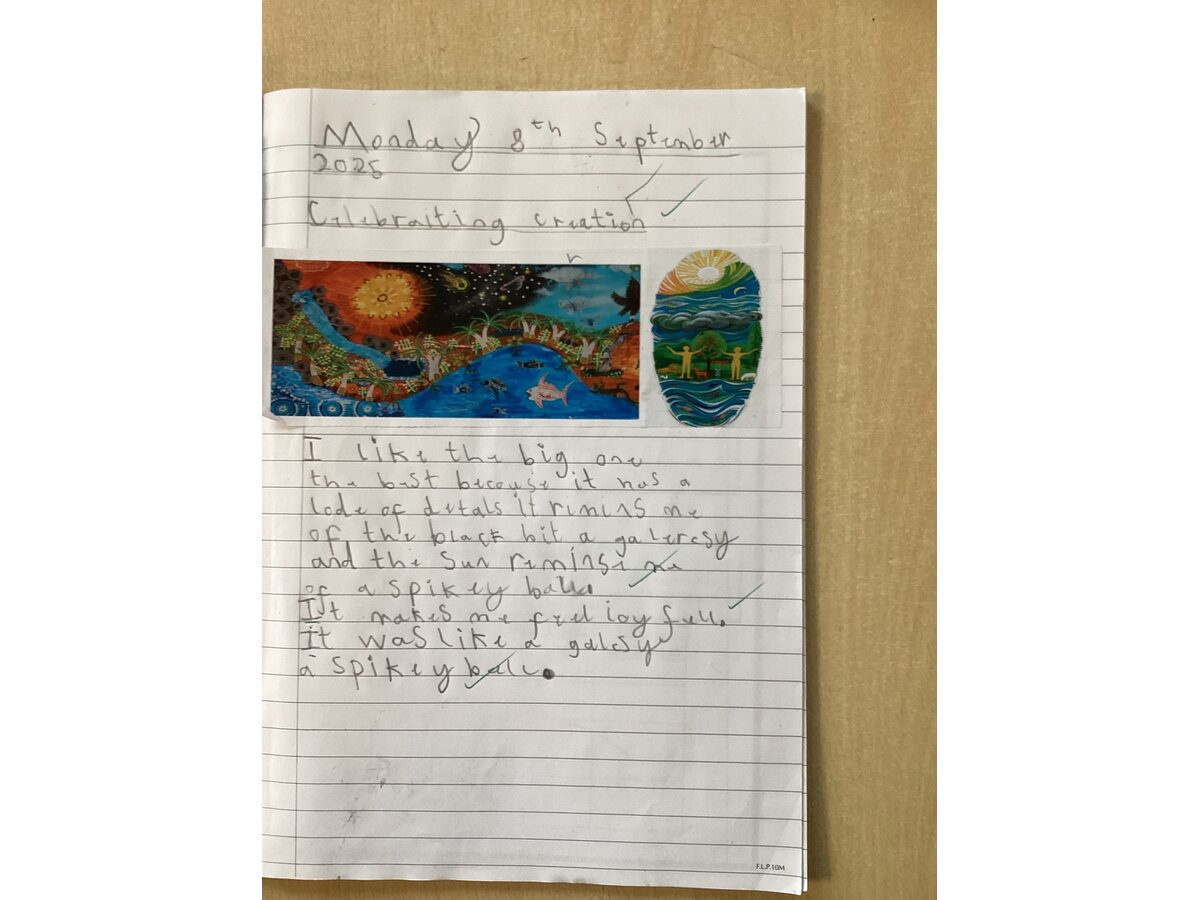 Monday 8th September
2025
Celebraiting creation
I like the big one
the best because it has a
lode of detals it remins me
of the black bit a galercsy
and the sun reminse me
of a spikey ball.
It makes me feel joyfull.
It was like a galcsy
a spikey ball.
F.L.P.10M